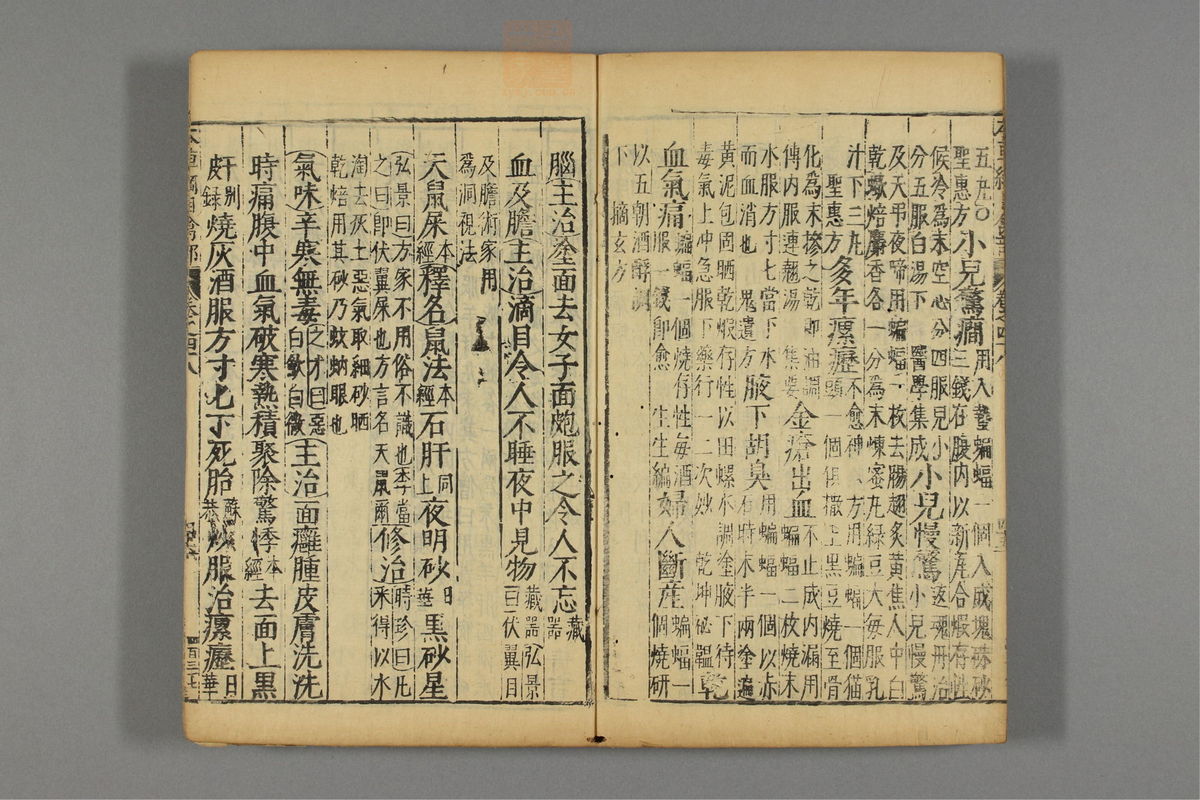 五九丸○
聖惠方小兒驚癇用入蟄蝙蝠一個入成塊硃砂三錢在腹內以新瓦合煆存性
候冷為末空心分四服兒小分五服白湯下醫學集成小兒慢驚返魂丹治小兒慢驚
及天弔夜啼用蝙蝠一枚去腸翅炙黃焦人中白
乾蠍焙麝香各一分為末煉蜜丸綠豆大每服乳
汁下三丸聖惠方多年瘰癧不愈神方用蝙蝠一個猫頭一個俱撒上黑豆燒至骨
化為末摻之乾即油調傅內服連翹湯集要金瘡出血不止成內漏用蝙蝠二枚燒末
水服方寸七當下水而血消也鬼遺方腋下胡臭用蝙蝠一個以赤
黃泥包固晒乾煆存性以田螺水調塗腋下待
毒氣上冲急服下藥行一二次妙乾坤祕韞乾
血氣痛蝙蝠一個燒存性每酒服一錢即愈生生編婦人斷產蝙蝠一個燒研
以五朝酒醇調下摘玄方
腦主治塗面去女子面皰服之令人不忘藏器
血及膽主治滴目令人不睡夜中見物藏器弘景曰伏翼目
及膽術家用為洞視法
天鼠屎本經釋名鼠法本經石肝同上夜明砂日華黑砂星
弘景曰方家不用俗不識也李當之曰即伏翼屎也方言名天鼠爾修治時珍曰凡采得以水
淘去灰土惡氣取細砂晒乾焙用其砂乃蚊蚋眼也
氣味辛寒無毒之才曰惡白斂白微主治面癰腫皮膚洗洗
時痛腹中血氣破寒熱積聚除驚悸本經去面上黑
皯別錄燒灰酒服方寸匕下死胎蘇恭炒服治瘰癧日華